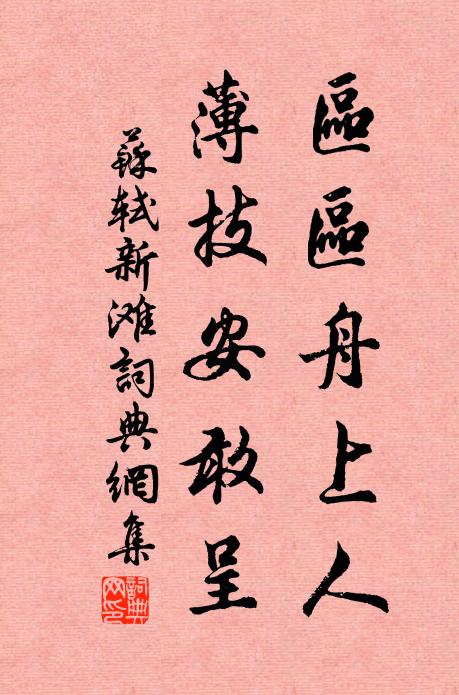 區區舟上人
薄技安敢呈
蘇軾新滩詞典網集
詞典
网印